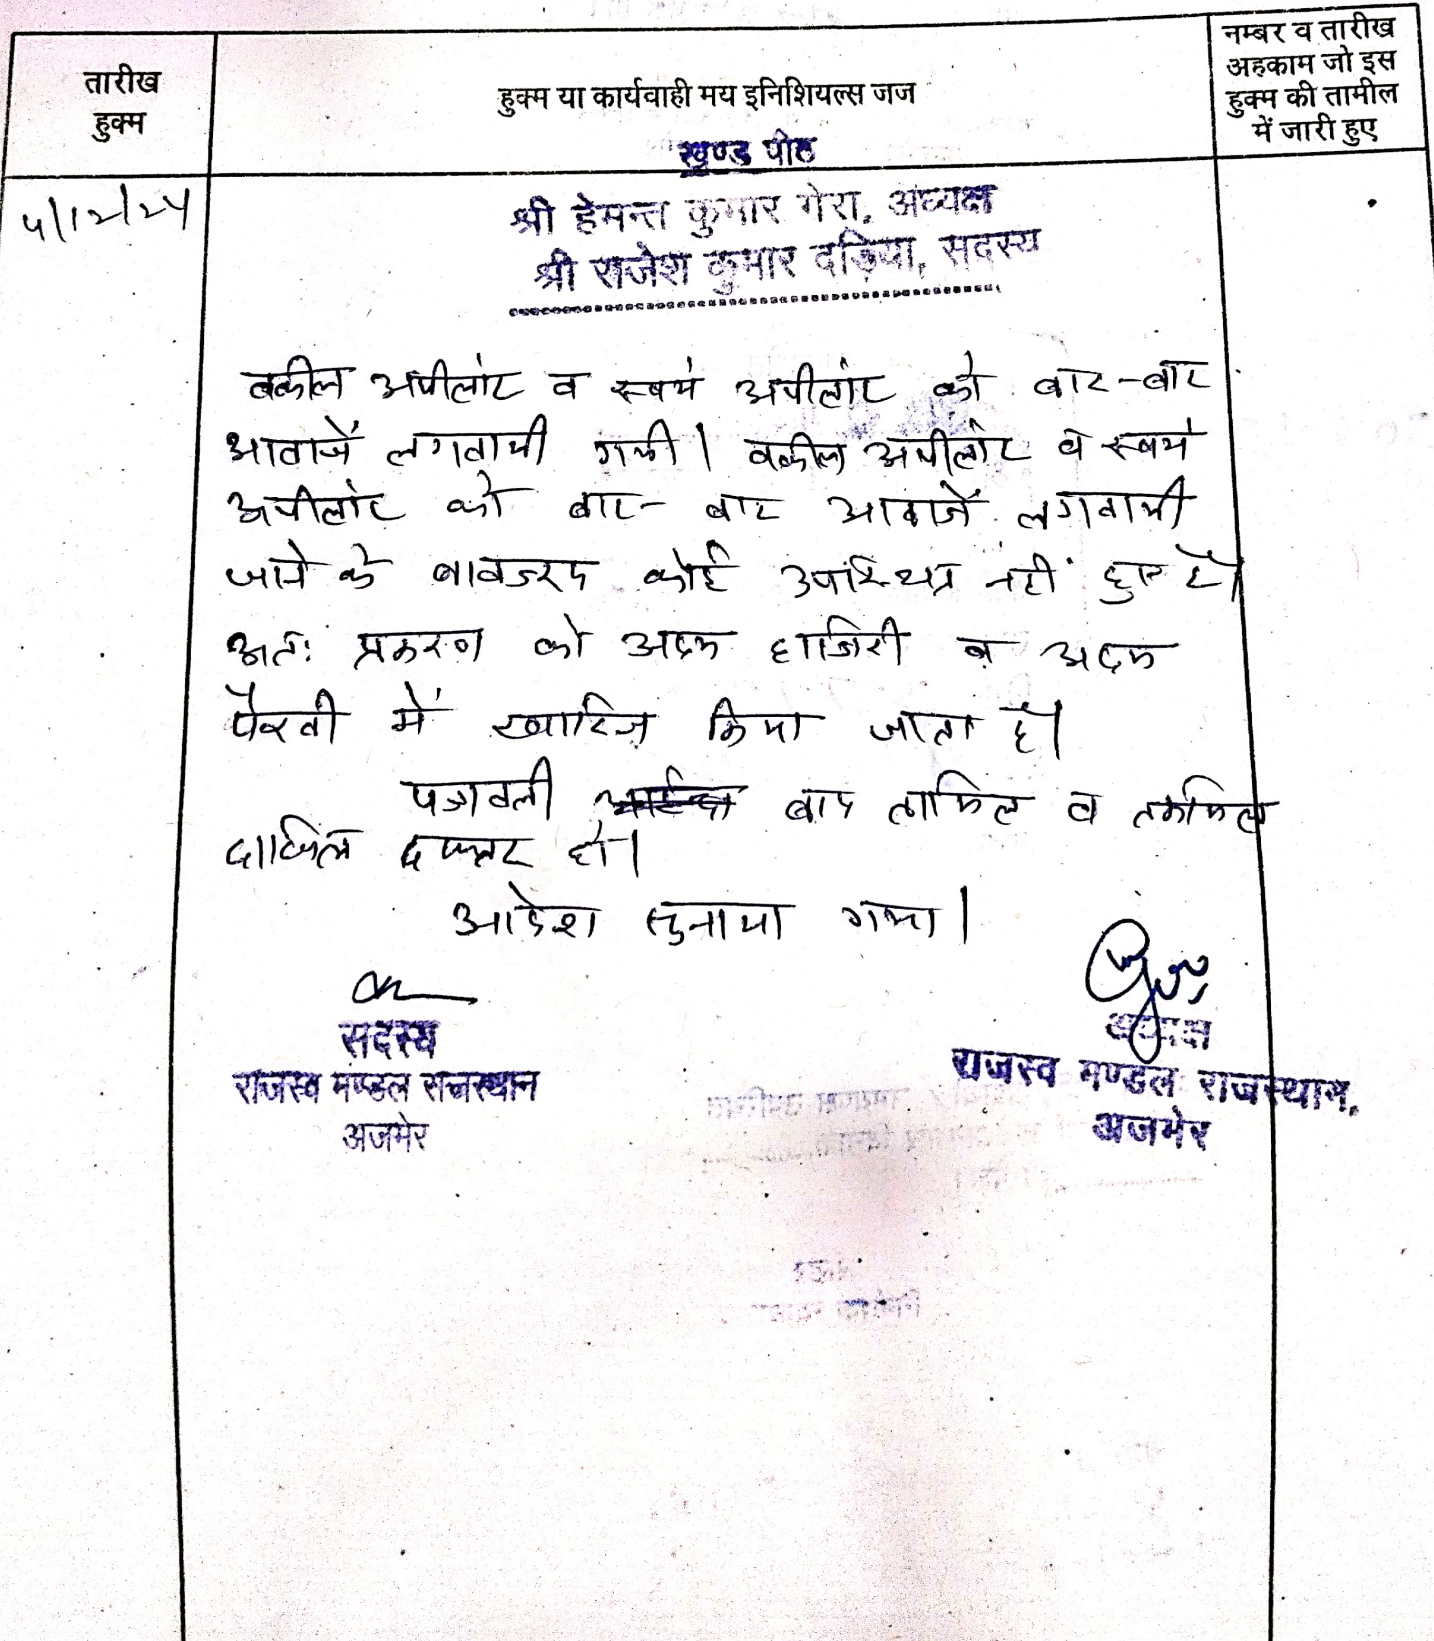 तारीख
हुक्म
हुक्म या कार्यवाही मय इनिशियल्स जज
नम्बर व तारीख
अहकाम जो इस
हुक्म की तामील
में जारी हुए
खण्ड पीठ
श्री हेमन्त कुमार गेरा, अध्यक्ष
श्री राजेश कुमार दड़िया, सदस्य
वकील अपीलांट व स्वयं अपीलांट को बार-बार
आवाजें लगवायी गयी। वकील अपीलांट व स्वयं
अपीलांट को बार-बार आवाजें लगवायी
जाने के बावजूद कोई उपस्थित नहीं हुए है।
अतः प्रकरण को अदम हाजिरी व अदम
पैरवी में खारिज किया जाता है।
पत्रावली बाद तामिल व तकमिल
दाखिल दफ्तर हो।
आदेश सुनाया गया।
सदस्य
राजस्व मण्डल राजस्थान
अजमेर
अध्यक्ष
राजस्व मण्डल राजस्थान,
अजमेर